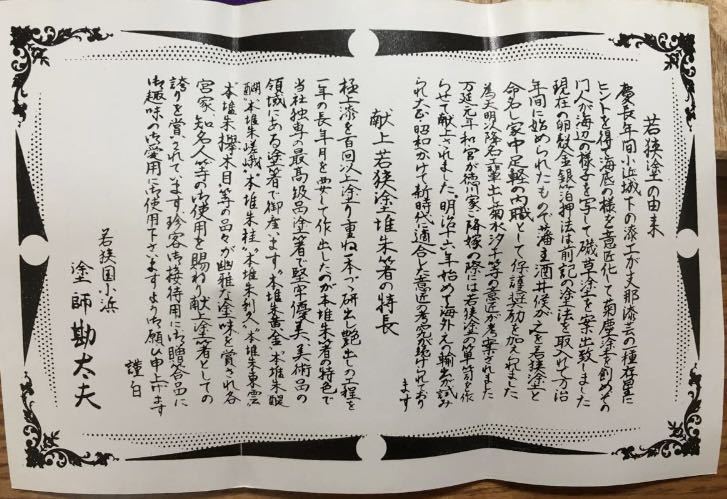 若狭塗の由来
慶長年間小浜城下の漆工が支那漆芸の一種存星に
ヒントを得て海底の様を意匠化して菊塵塗を創めその
門人が海辺の様子を写して磯草塗を案出致しました
現在の卵殻金銀箔押法は前記の塗法を取入れて万治
年間に始められたもので藩主酒井候が之を若狭塗と
命名し家中足軽の内職として保護奨励を加えられました
為天明以降名工輩出し菊水汐干等の意匠が考案されました
万延元年和宮の徳川家ご降嫁の際には若狭塗の箪笥を作
らせて献上されました明治十六年始めて海外えの輸出が試み
られ大正昭和かけて新時代に適合した意匠の考究が続けられており
ます
献上若狭塗堆朱箸の特長
極上漆を百回以上塗り重ね一本づつ研出し艶出しの工程を
一年の長年月を要して作出したのが本堆朱箸の特色で
当社独専の最高級品塗箸で堅牢優美、美術品の
領域にある塗箸で御座ます。本堆朱黄金、本堆朱醍
醐、本堆朱嵯峨、本堆朱桂、本堆朱利久、本堆朱東雲
本堆朱欅木目、等の品々が幽雅な塗味を賞され各
宮家、知名人等の御使用を賜わり献上塗箸としての
誇りを賞されています珍客御接待用に御贈答品に
御趣味の御愛用に御使用下さいますよう御願い申上ます
謹白
若狭国小浜
塗師勘太夫